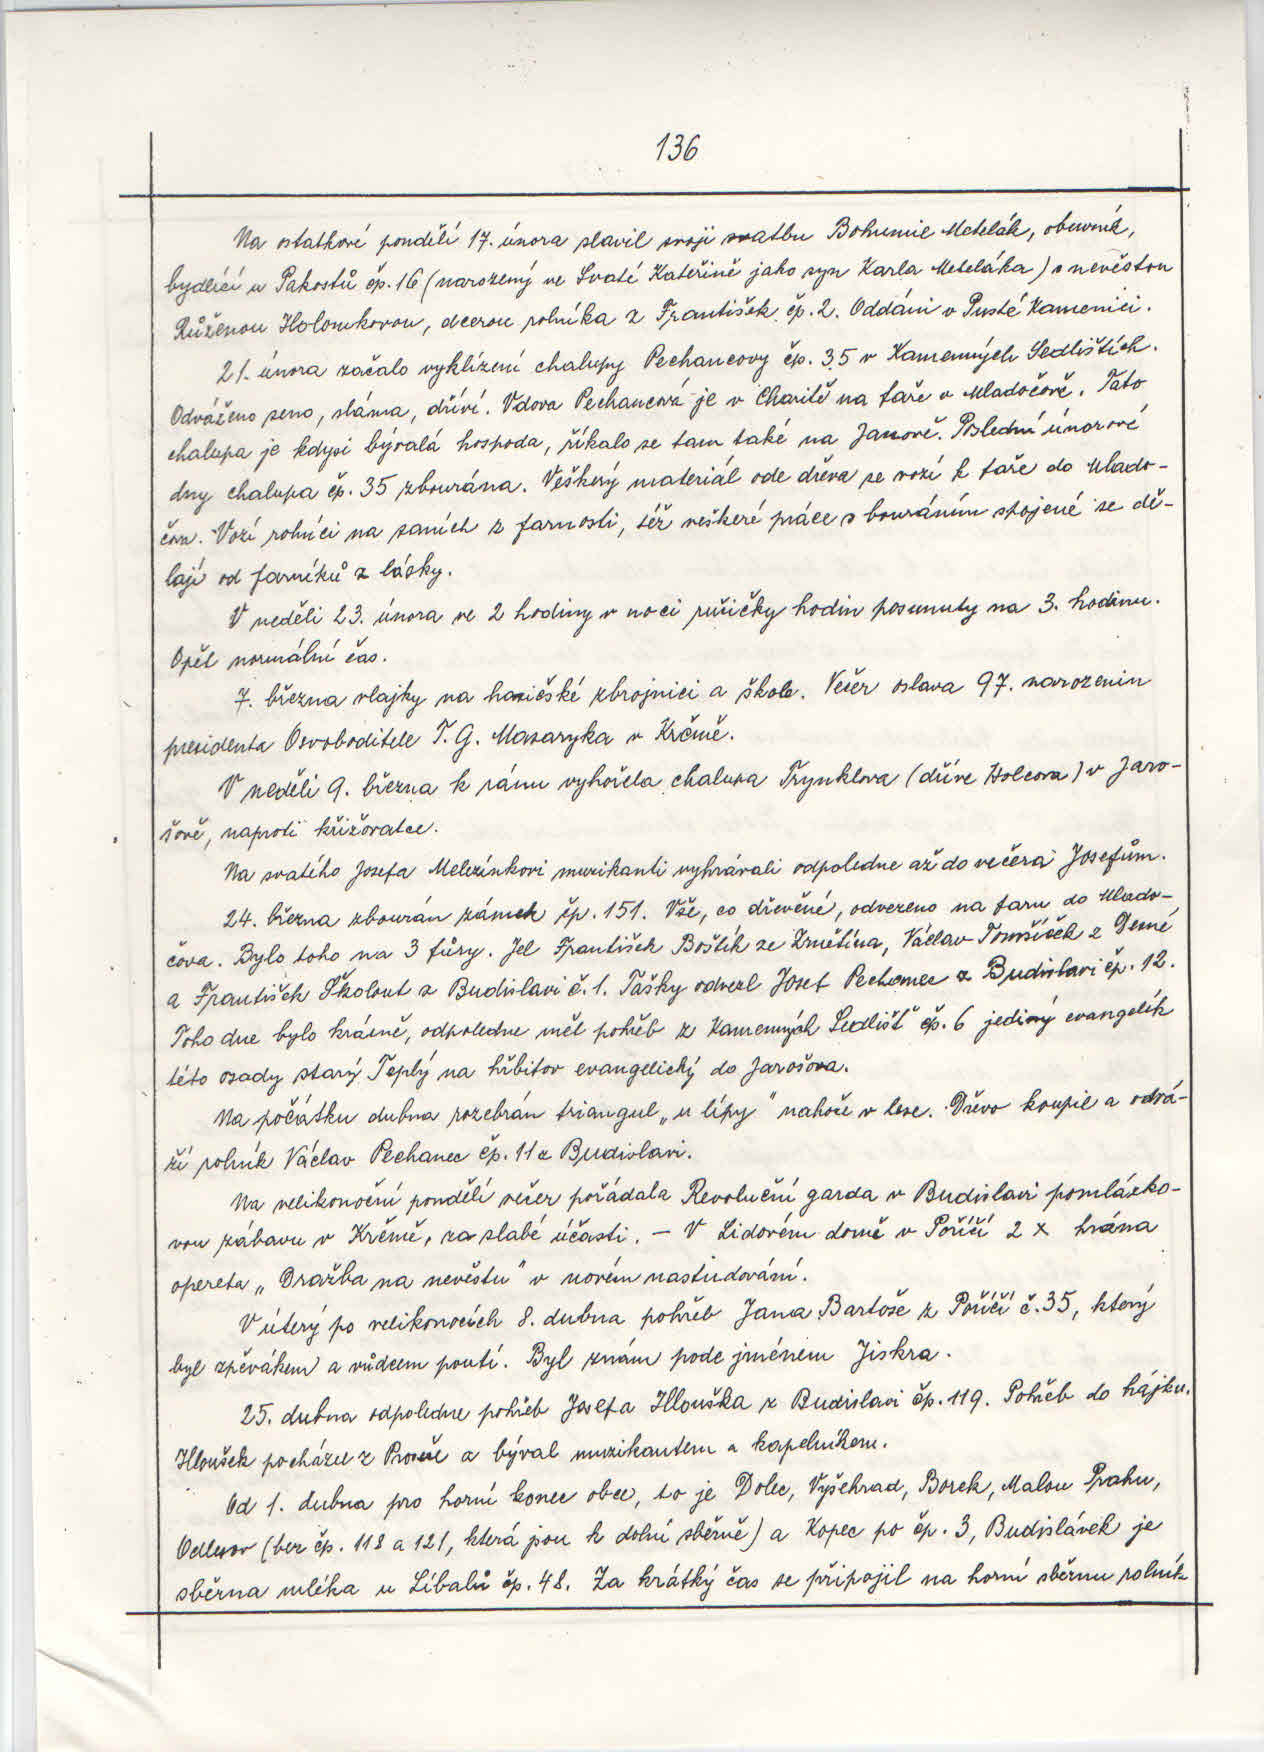 136
Na ostatkové pondělí 17. února slavil svoji svatbu Bohumil Metelák, obuvník,
bydlící u Pakostů čp. 16 (narozený ve Svaté Kateřině jako syn Karla Meteláka) s nevěstou
Růženou Holomkovou, dcerou rolníka z František čp. 2. Oddáni v Pusté Kamenici.
21. února začalo vyklízení chalupy Pechancovy čp. 35 v Kamenných Sedlištích.
Odváženo seno, sláma, dříví. Vdova Pechancová je v Charitě na faře v Mladočově. Tato
chalupa je kdysi bývalá hospoda, říkalo se tam také na Janově. Poslední únorové
dny chalupa čp. 35 zbourána. Veškerý materiál ode dřeva se vozí k faře do Mlado-
čova. Vozí rolníci na saních z farnosti, též veškeré práce s bouráním spojené se dě-
lají od farníků z lásky.
V neděli 23. února ve 2 hodiny v noci ručičky hodin posunuty na 3. hodinu.
Opět normální čas.
7. března vlajky na hasičské zbrojnici a škole. Večer oslava 97. narozenin
presidenta Osvoboditele T. G. Masaryka v Krčmě.
V neděli 9. března k ránu vyhořela chalupa Trynklova (dříve Holcova) v Jaro-
šově, naproti křižovatce.
Na svatého Josefa Melezínkovi muzikanti vyhrávali odpoledne až do večera Josefům.
24. března zbourán zámek čp. 151. Vše, co dřevěné, odvezeno na faru do Mlado-
čova. Bylo toho na 3 fůry. Jel František Boštík ze Zrnětína, Václav Tomšíček z Desné
a František Školout z Budislavi č. 1. Tašky odvezl Josef Pechanec z Budislavi čp. 12.
Toho dne bylo krásně, odpoledne měl pohřeb z Kamenných Sedlišť čp. 6 jediný evangelík
této osady starý Teplý na hřbitov evangelický do Jarošova.
Na počátku dubna rozebrán triangul „u lípy" nahoře v lese. Dřevo koupil a odvá-
ží rolník Václav Pechanec čp. 11 z Budislavi.
Na velikonoční pondělí večer pořádala Revoluční garda v Budislavi pomlázko-
vou zábavu v Krčmě, za slabé účasti. — V Lidovém domě v Poříčí 2 x hrána
opereta „Dražba na nevěstu" v novém nastudování.
V úterý po velikonocích 8. dubna pohřeb Jana Bartoše z Poříčí č. 35, který
byl zpěvákem a vůdcem poutí. Byl znám pode jménem Jiskra.
25. dubna odpoledne pohřeb Josefa Hlouška z Budislavi čp. 119. Pohřeb do hájku.
Hloušek pocházel z Proseče a býval muzikantem a kapelníkem.
Od 1. dubna pro horní konec obce, to je Dolec, Vyšehrad, Borek, Malou Prahu,
(bez čp. 118 a 121, která jsou k dolní sběrně) a Kopec po čp. 3, Budislávek je
sběrna mléka u Líbalů čp. 48. Za krátký čas se připojil na horní sběrnu rolník